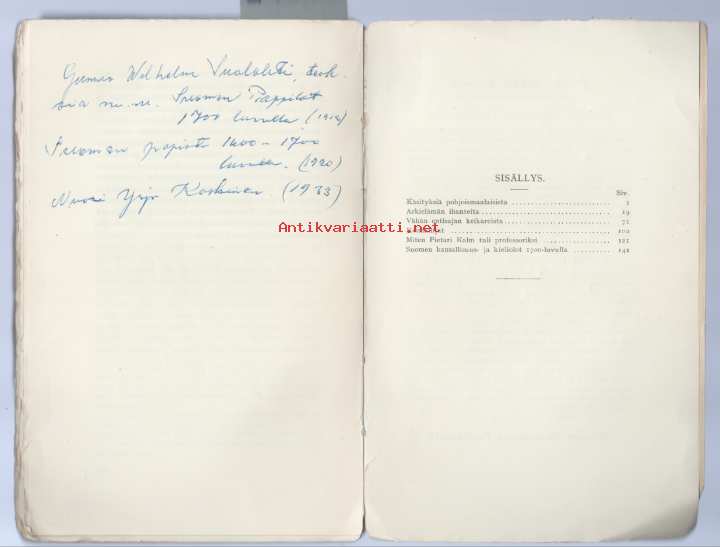 Gunnar Wilhelm Suolahti, teok-
sia m.m. Suomen Pappilat
1700 luvulla (1912)
Suomen papisto 1600 - 1700
luvulla. (1920)
Nuori Yrjö Koskinen. (1933)
SISÄLLYS.
Siv.
Käsityksiä pohjoismaalaisista 1
Arkielämän ihanteita 19
Vähän entisajan keikareista 71
100
Miten Pietari Kalm tuli professoriksi 121
Suomen kansallisuus- ja kieliolot 1700-luvulla 141
Antikvariaatti.net